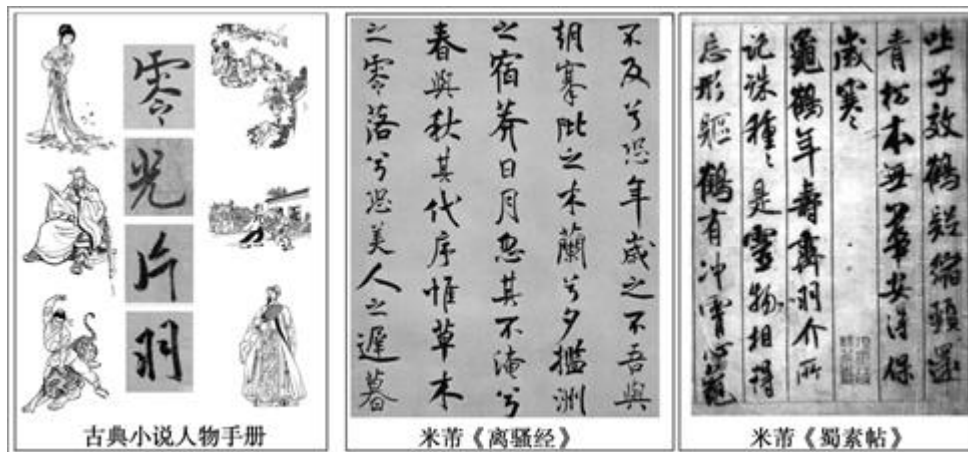 零光片羽
古典小说人物手册
不及兮恐年歲之不吾與
朝搴阰之木蘭兮夕攬洲
之宿莽日月忽其不淹兮
春與秋其代序惟草木
之零落兮恐美人之遲暮
米芾《离骚经》
吐子效鶴疑縮頸還
青松本無華安得保
歲寒
龜鶴年壽齊羽介所
託殊種〻是靈物相得
忘形軀鶴有沖霄心龜
米芾《蜀素帖》